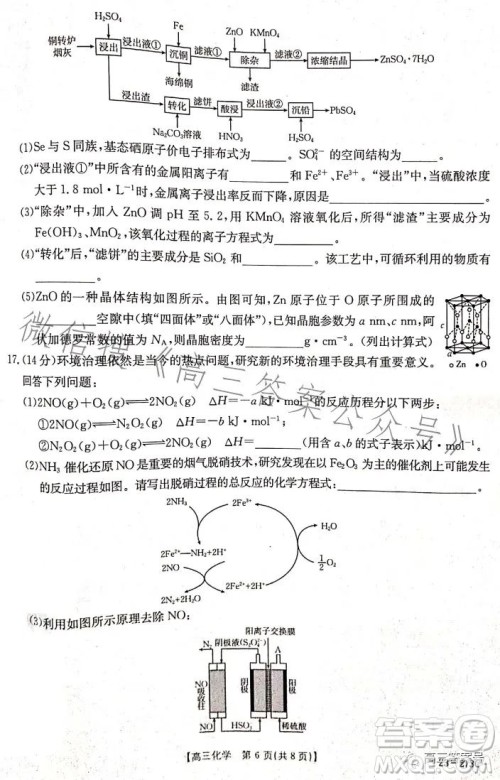 H₂SO₄
Fe
ZnO KMnO₄
铜转炉
烟灰
浸出
浸出液①
沉铜
滤液①
除杂
滤液②
浓缩结晶
ZnSO₄·7H₂O
海绵铜
滤渣
浸出渣
转化
滤饼
酸浸
浸出液②
沉铅
PbSO₄
Na₂CO₃溶液
HNO₃
H₂SO₄
(1)Se与S同族,基态硒原子价电子排布式为______。SO₄²⁻的空间结构为______。
(2)“浸出液①”中所含有的金属阳离子有______和Fe²⁺、Fe³⁺。“浸出”中,当硫酸浓度
大于1.8 mol·L⁻¹时,金属离子浸出率反而下降,原因是______
(3)“除杂”中,加入ZnO调pH至5.2,用KMnO₄溶液氧化后,所得“滤渣”主要成分为
Fe(OH)₃、MnO₂,该氧化过程的离子方程式为______
(4)“转化”后,“滤饼”的主要成分是SiO₂和______。该工艺中,可循环利用的物质有
______。
(5)ZnO的一种晶体结构如图所示。由图可知,Zn原子位于O原子所围成的
______空隙中(填“四面体”或“八面体”),已知晶胞参数为a nm、c nm,阿
伏加德罗常数的值为N_A,则密度为______g·cm⁻³。(列出计算式)
17.(14分)环境治理依然是当今的热点问题,研究新的环境治理手段具有重要意义。
回答下列问题:
(1)2NO(g)+O₂(g)⇌2NO₂(g) ΔH=-a kJ·mol⁻¹的反应历程分以下两步:
①2NO(g)⇌N₂O₂(g) ΔH=-b kJ·mol⁻¹;
②N₂O₂(g)+O₂(g)⇌2NO₂(g) ΔH=______(用含a、b的式子表示)kJ·mol⁻¹。
(2)NH₃催化还原NO是重要的烟气脱硝技术,研究发现在以Fe₂O₃为主的催化剂上可能发生
的反应过程如图。请写出脱硝过程的总反应的化学方程式:______。
2NH₃
2Fe³⁺
H₂O
2Fe²⁺—NH₂+2H⁺
2NO
½O₂
2Fe²⁺+2H⁺
2N₂+2H₂O
(3)利用如图所示原理去除NO:
阳离子交换膜
N₂
阴极液(S₂O₄²⁻)
A
NO
吸收柱
阴极
阳极
NO
HSO₃⁻
稀硫酸
【高三化学 第6页(共8页)】
微信搜《高三答案公众号》
答案圈
MXQE.COM